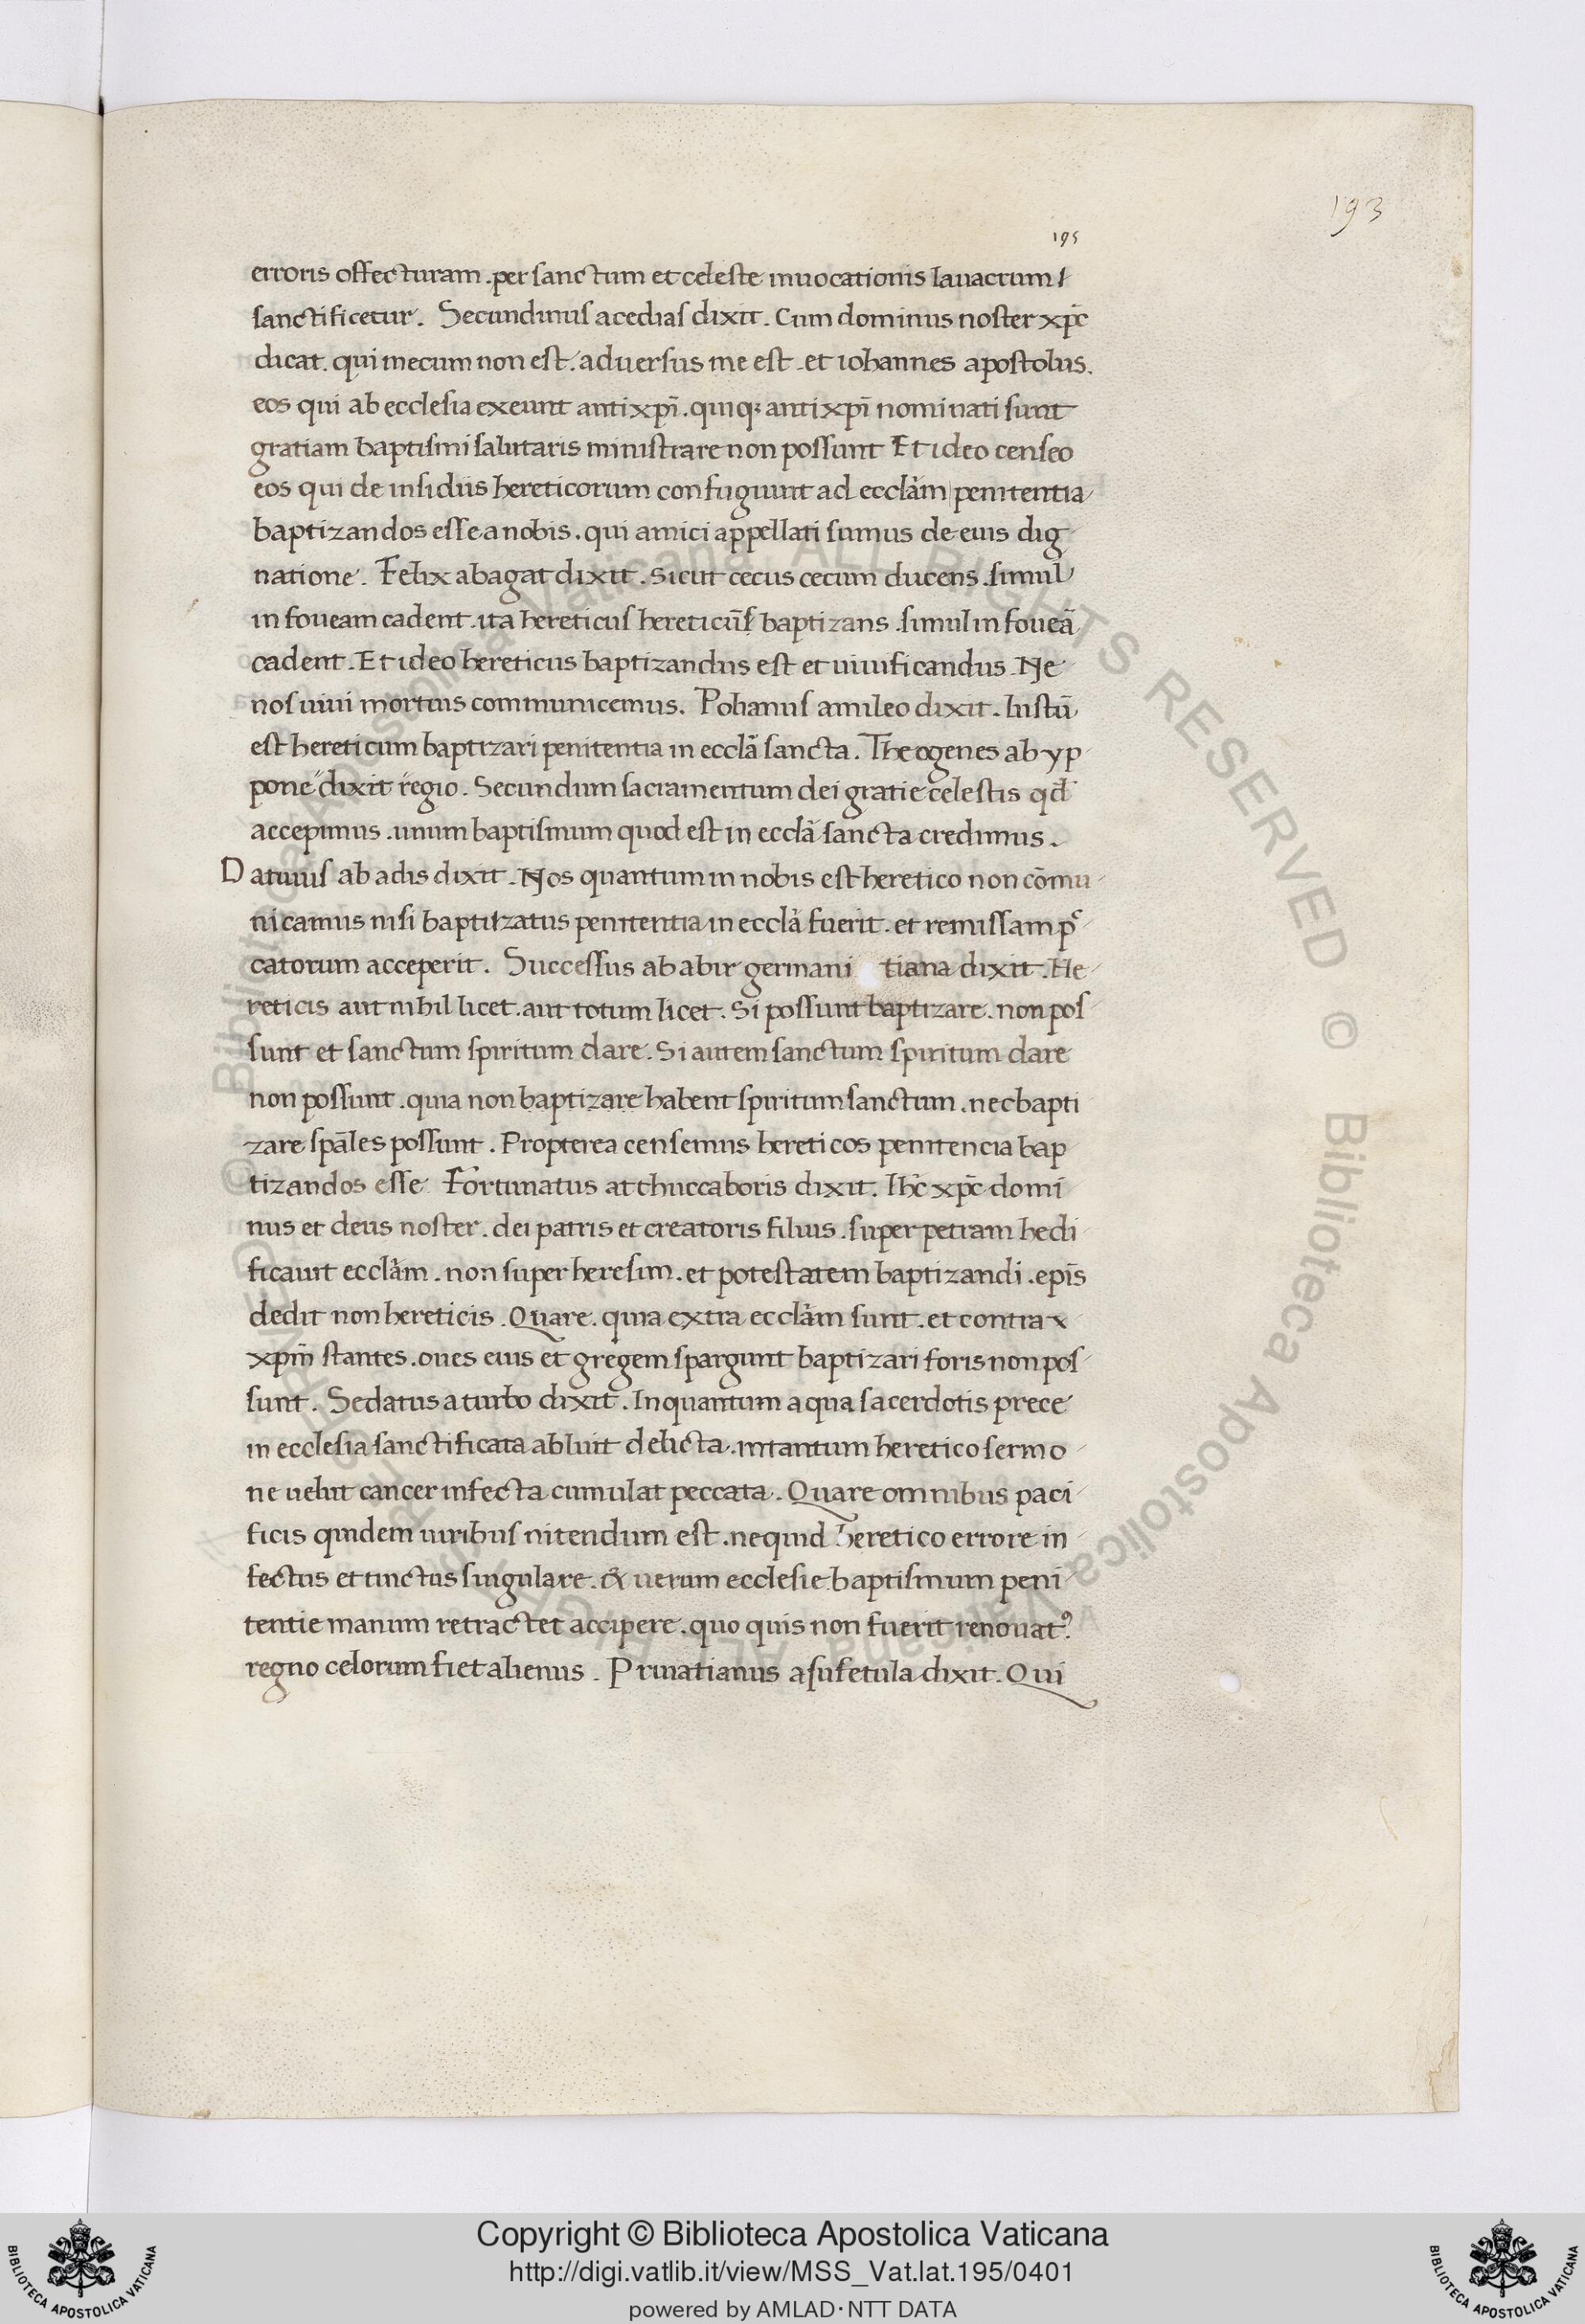 193
195
erroris offecturam . per sanctum et celeste inuocationis lauacrum
sanctificetur . Secundinus acedias dixit . Cum dominus noster xp̄c
dicat . qui mecum non est . aduersus me est . et iohannes apostolus .
eos qui ab ecclesia exeunt antixpī . quinq; antixpī nominati sunt
gratiam baptismi salutaris ministrare non possunt Et ideo censeo
eos qui de insidiis hereticorum confugiunt ad ecclām penitentia
baptizandos esse a nobis . qui amici appellati sumus de eius dig
natione . Felix abagat dixit . Sicut cecus cecum ducens . simul
in foueam cadent . ita hereticus hereticūs baptizans . simul in foueā
cadent . Et ideo hereticus baptizandus est et uiuificandus . Ne
nos uiui mortuis communicemus . Pohanus amileo dixit . Iustū
est hereticum baptizari penitentia in ecclā sancta . Theogenes ab yp
pone dixit regio . Secundum sacramentum dei gratie celestis qd̄
accepimus . unum baptismum quod est in ecclā sancta credimus .
Datiuus ab adis dixit . Nos quantum in nobis est heretico non cōmu
nicamus nisi baptizatus penitentia in ecclā fuerit . et remissam p̄c
catorum acceperit . Successus ab abir germani tiana dixit . He
reticis aut nihil licet . aut totum licet . Si possunt baptizare . non pos
sunt et sanctum spiritum dare . Si autem sanctum spiritum dare
non possunt . quia non baptizare habent spiritum sanctum . nec bapti
zare spāles possunt . Propterea censemus hereticos penitencia bap
tizandos esse Fortunatus at thuccaboris dixit . Ihc̄ xp̄c domi
nus et deus noster . dei patris et creatoris filius . super petram hedi
ficauit ecclām . non super heresim . et potestatem baptizandi . epīs
dedit non hereticis . Quare . quia extra ecclām sunt . et contra x
xpm̄ stantes . oues eius et gregem spargunt baptizari foris non pos
sunt . Sedatus a turbo dixit . In quantum aqua sacerdotis prece
in ecclesia sanctificata abluit delicta . intantum heretico sermo
ne uelut cancer infecta cumulat peccata . Quare omnibus paci
ficis quidem uiribus nitendum est . ne quid heretico errore in
fectus et tinctus singulare . & uerum ecclesie baptismum peni
tentie manum retractet accipere . quo quis non fuerit renouatꝰ
regno celorum fiet alienus . Priuatianus a sufetula dixit . Qui
Copyright © Biblioteca Apostolica Vaticana
http://digi.vatlib.it/view/MSS_Vat.lat.195/0401
powered by AMLAD·NTT DATA
BIBLIOTECA APOSTOLICA VATICANA
BIBLIOTECA APOSTOLICA VATICANA